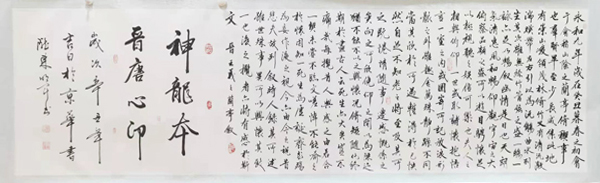 永和九年歲在癸丑暮春之初會
于會稽山陰之蘭亭脩禊事
也群賢畢至少長咸集此地
有崇山峻領茂林脩竹又有清流激
湍暎帶左右引以為流觴曲水列
坐其次雖無絲竹管弦之盛一觴一
詠亦足以暢敘幽情是日也天朗
氣清惠風和暢仰觀宇宙之大
俯察品類之盛所以遊目騁懷足
以極視聽之娛信可樂也夫人之
相與俯仰一世或取諸懷抱悟言
一室之內或因寄所託放浪形
骸之外雖趣舍萬殊靜躁不同
當其欣於所遇暫得於己怏
然自足不知老之將至及其所
之既惓情隨事遷感慨係之
矣向之所欣俛仰之間以為陳
跡猶不能不以之興懷況脩短隨化終
期於盡古人云死生亦大矣豈不
痛哉每攬昔人興感之由若合
一契未嘗不臨文嗟悼不能喻之
於懷固知一死生為虛誕齊彭殤
為妄作後之視今亦由今之視昔
悲夫故列敘時人錄其所述
雖世殊事異所以興懷其致
一也後之攬者亦將有感於斯
文 晉王羲之蘭亭敘
神龍本
晉唐心印
歲次辛丑年
吉日於京華書